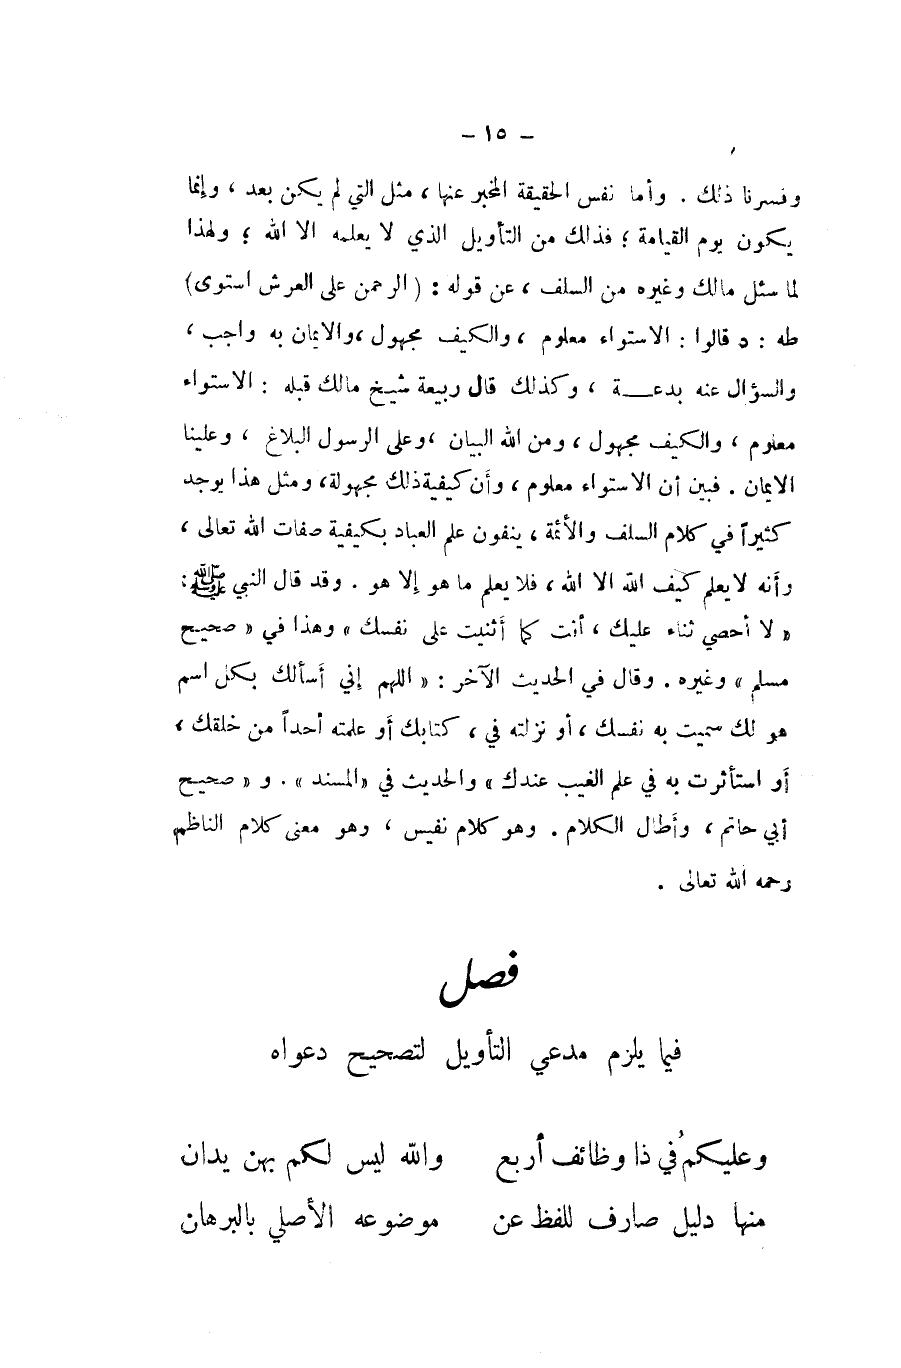 - ١٥ -
وفسرنا ذلك . وأما نفس الحقيقة المخبر عنها ، مثل التي لم يكن بعد ، وإنما
يكون يوم القيامة ؛ فذلك من التأويل الذي لا يعلمه الا الله ؛ ولهذا
لما سئل مالك وغيره من السلف ، عن قوله : ( الرحمن على العرش استوى)
طه : ٥ قالوا : الاستواء معلوم ، والكيف مجهول ،والايمان به واجب ،
والسؤال عنه بدعــة ، وكذلك قال ربيعة شيخ مالك قبله : الاستواء
معلوم ، والكيف مجهول ، ومن الله البيان ،وعلى الرسول البلاغ ، وعلينا
الايمان . فبين أن الاستواء معلوم ، وأن كيفية ذلك مجهولة، ومثل هذا يوجد
كثيراً في كلام السلف والأئمة ، ينفون علم العباد بكيفية صفات الله تعالى ،
وأنه لا يعلم كيف الله الا الله ، فلا يعلم ما هو إلا هو . وقد قال النبي ﷺ :
« لا أحصي ثناء عليك ، أنت كما أثنيت على نفسك » وهذا في « صحيح
مسلم » وغيره . وقال في الحديث الآخر : « اللهم إني أسألك بكل اسم
هو لك سميت به نفسك ، أو نزلته في ، كتابك أو علمته أحداً من خلقك ،
أو استأثرت به في علم الغيب عندك » والحديث في «المسند » . و « صحيح
أبي حاتم ، وأطال الكلام . وهو كلام نفيس ، وهو معنى كلام الناظم
رحمه الله تعالى .
فصل
فيما يلزم مدعي التأويل لتصحيح دعواه
وعليكمُ في ذا وظائف أربع والله ليس لكم بهن يدان
منها دليل صارف للفظ عن موضوعه الأصلي بالبرهان